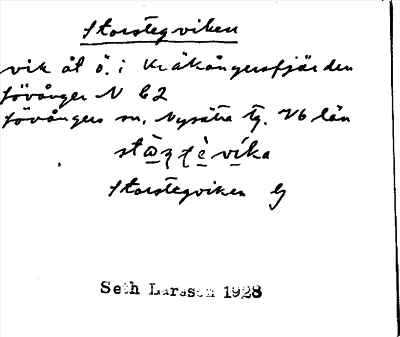 Storstegviken
vik åt ö. i Kråkångersfjärden
Lövånger N 62
Lövångers sn, Nysätra tg. Vb län
Storstegviken
Seth Larsson 1928